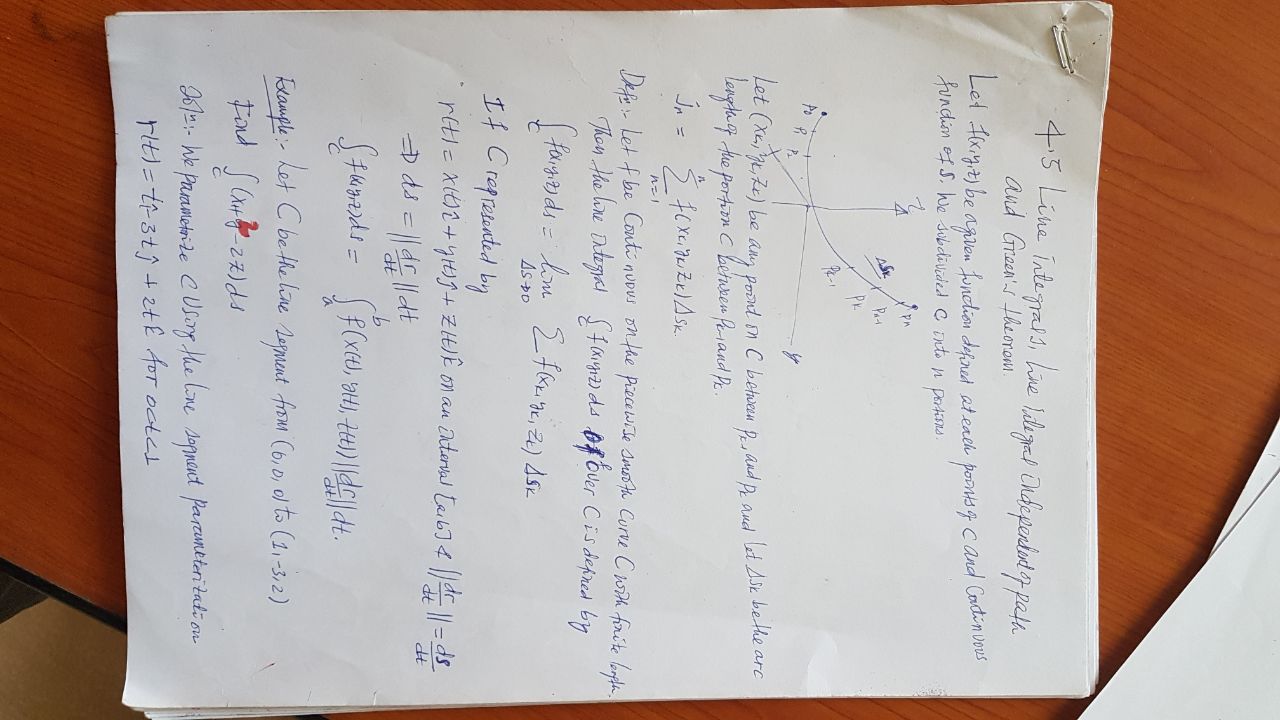 4.5 Line integrals, Line integral independent of path
and Green's theorem.
Let f(x,y,z) be a given function defined at each points of C and Continuous
function of S. We subdivided C, into n portions.
z
y
P0
P1
P2
Pk-1
Δsk
Pk
Pk+1
Pn
Let (xk, yk, zk) be any point on C between Pk-1 and Pk and let Δsk be the arc
length of the portion C between Pk-1 and Pk.
Jn = Σ f(xk, yk, zk) Δsk
n
n=1
Defn:- Let f be Continuous on the piecewise smooth curve C with finite length.
Then the line integral ∫ f(x,y,z) ds over C is defined by
C
∫ f(x,y,z) ds = lim Σ f(xk, yk, zk) Δsk
C Δs→0
If C represented by
r(t) = x(t)î + y(t)ĵ + z(t)k̂ on an interval [a,b] & ||dr/dt|| = ds/dt
⇒ ds = ||dr/dt|| dt
∫ f(x,y,z) ds = ∫ f(x(t), y(t), z(t)) ||dr/dt|| dt.
C a b
Example:- Let C be the line segment from (0,0,0) to (1,-3,2)
Find ∫ (x+y²-2z) ds
C
Soln:- We parametrize C Using the line segment parameterization
r(t) = tî - 3tĵ + 2tk̂ for 0<t<1